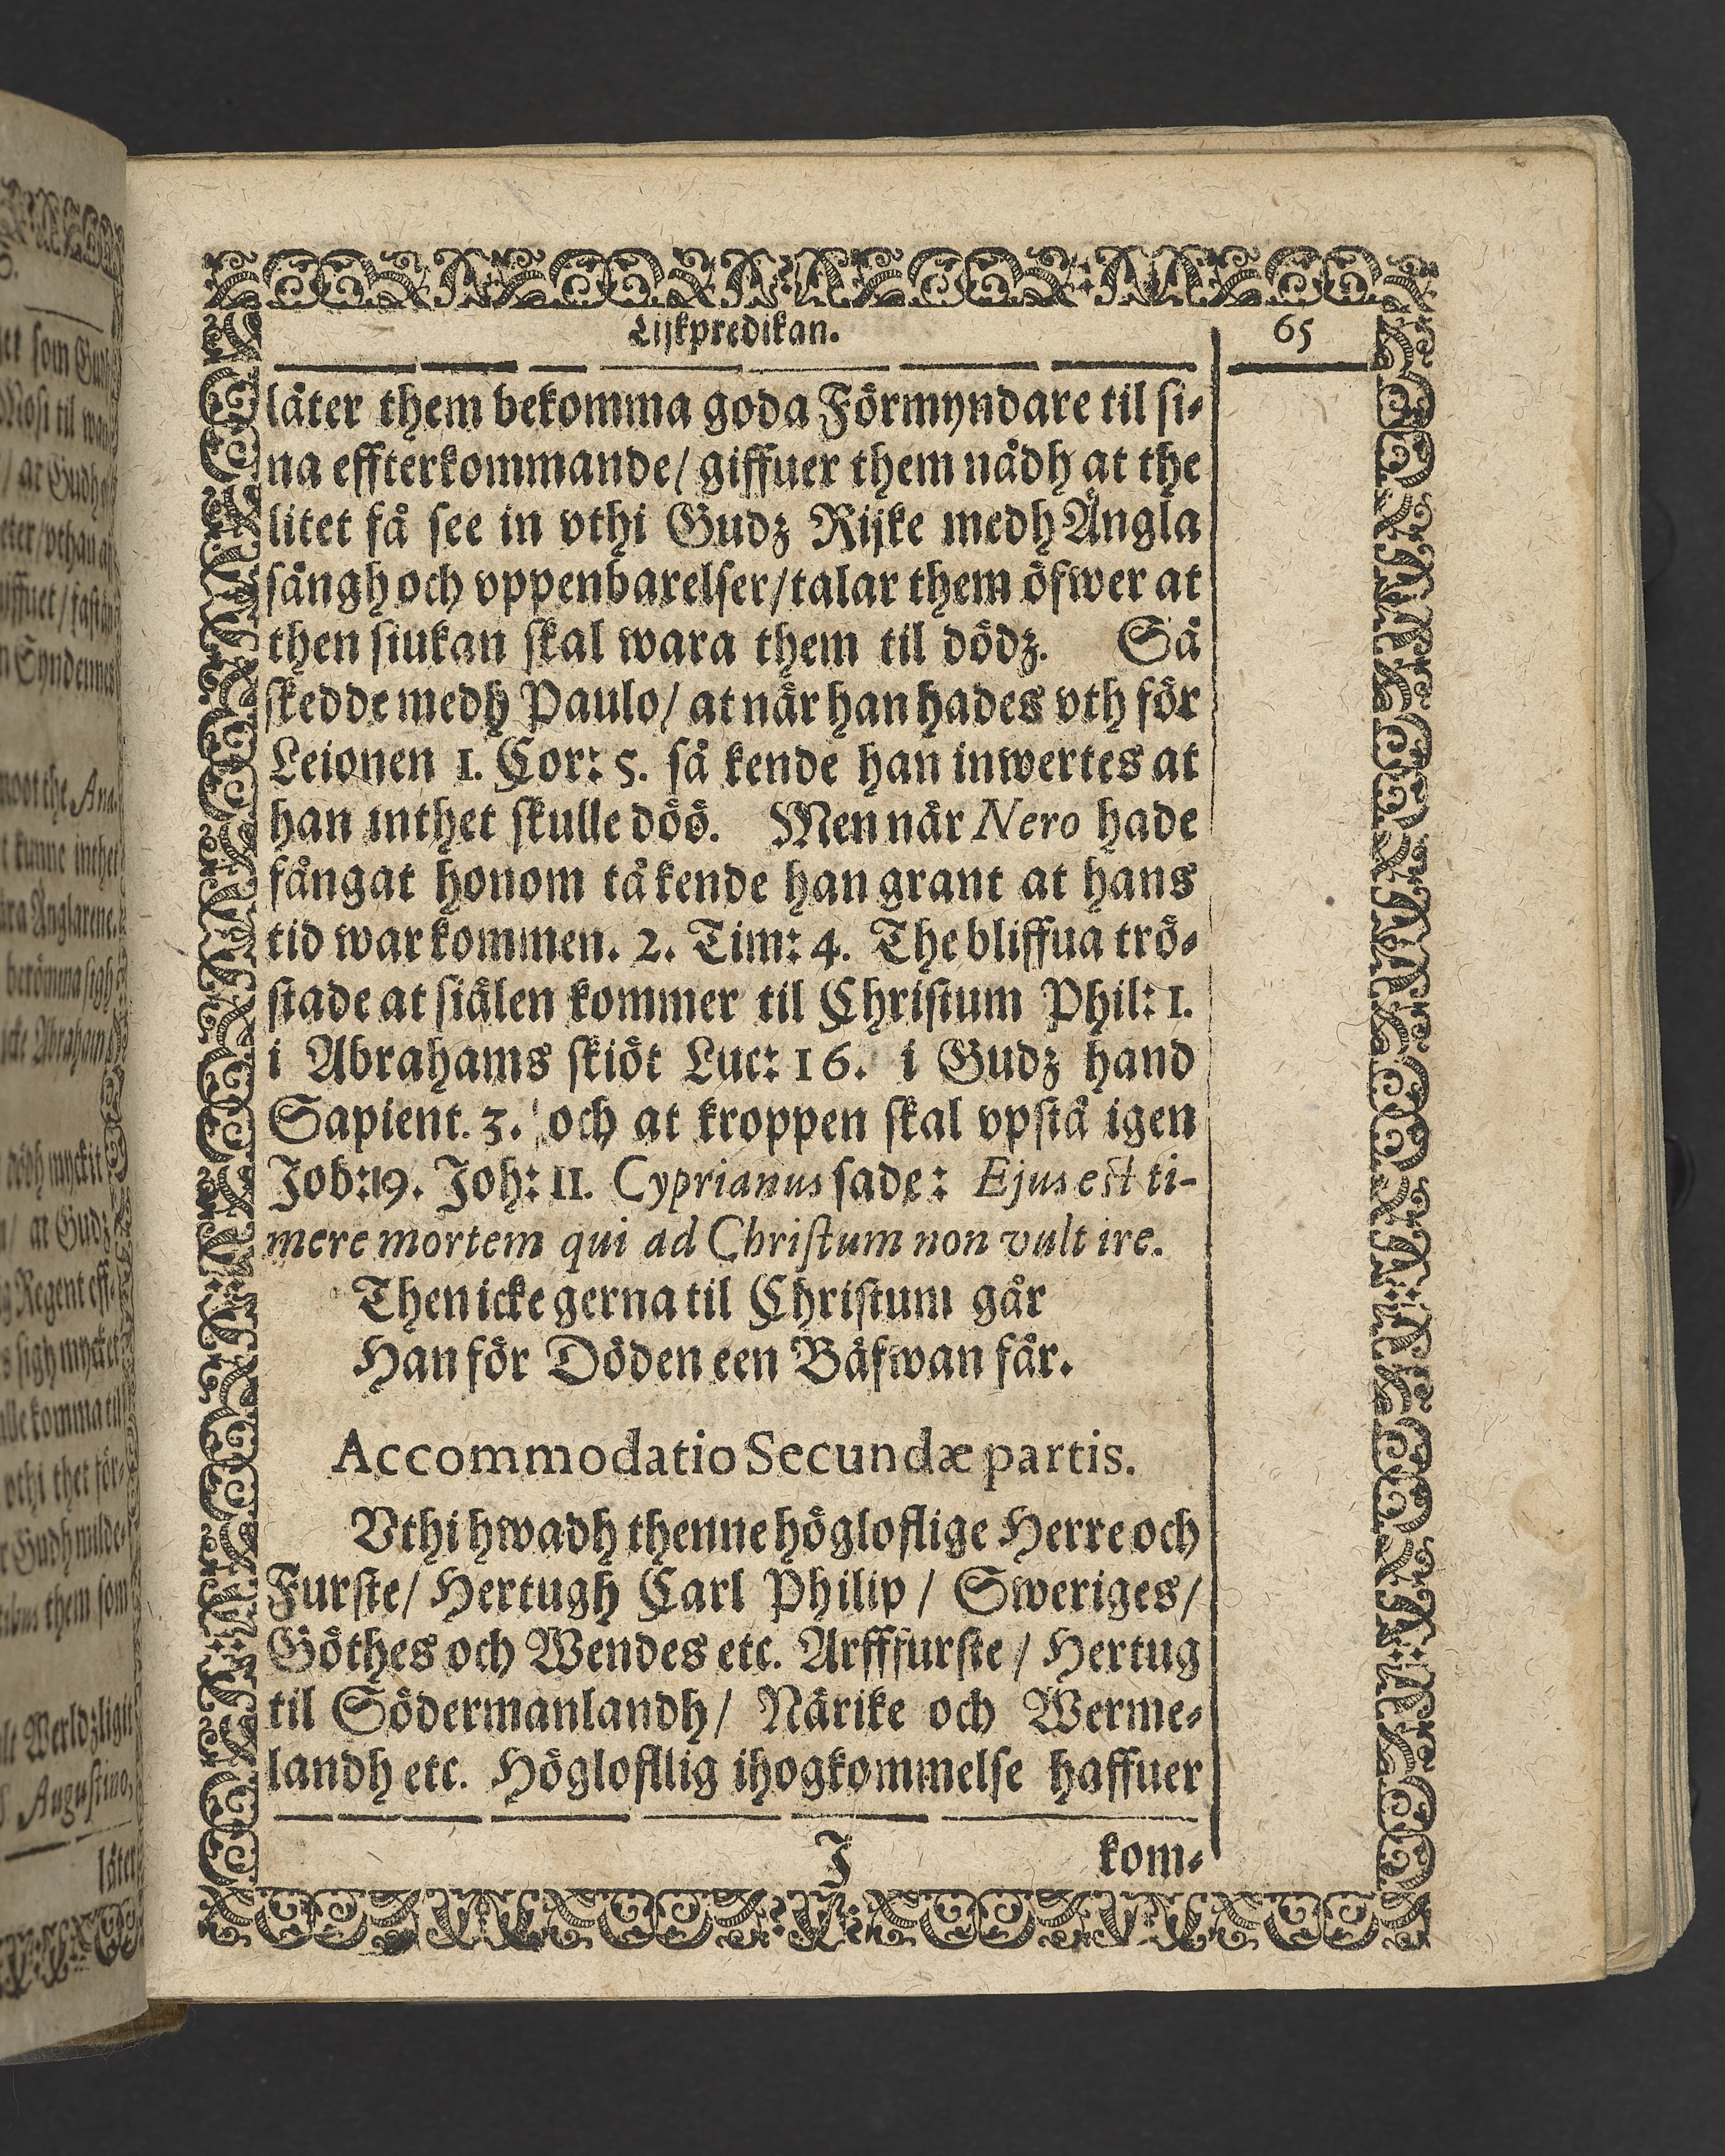 Lijkpredikan. 65
låter them bekomma goda Förmyndare til si-
na effterkommande/ giffuer them nådh at the
litet få see in vthi Gudz Rijke medh Ängla
sångh och vppenbarelser/ talar them öfwer at
then siukan skal wara them til dödz. Så
skedde medh Paulo/ at når han hades vth för
Leionen 1. Cor: 5. så kende han inwertes at
han inthet skulle döö. Men når Nero hade
fångat honom tå kende han grant at hans
tid war kommen. 2. Tim: 4. The bliffua trö-
stade at siälen kommer til Christum Phil: 1.
i Abrahams skiöt Luc: 16. i Gudz hand
Sapient. 3. och at kroppen skal vpstå igen
Job: 19. Joh: 11. Cyprianus sade: Ejus est ti-
mere mortem qui ad Christum non vult ire.
Then icke gerna til Christum går
Han för Döden een Bäfwan får.
Accommodatio Secundæ partis.
Vthi hwadh thenne högloflige Herre och
Furste/ Hertugh Carl Philip/ Sweriges/
Göthes och Wendes etc. Arfffurste/ Hertug
til Södermanlandh/ Närike och Werme-
landh etc. Höglofllig ihogkommelse haffuer
J kom-